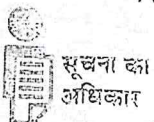 सूचना का
अधिकार